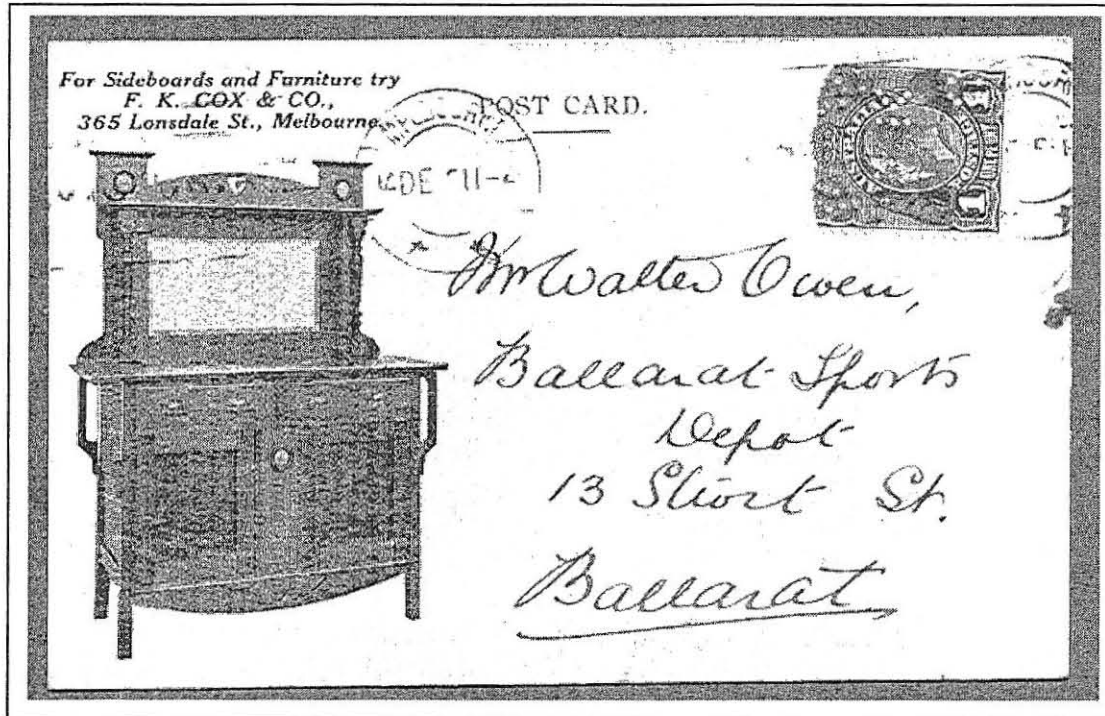 For Sideboards and Furniture try
F. K. COX & CO.,
365 Lonsdale St., Melbourne.
POST CARD.
MELBOURNE
DE 11
Mr Walter Owen,
Ballarat Sports
Depot
13 Short St.
Ballarat